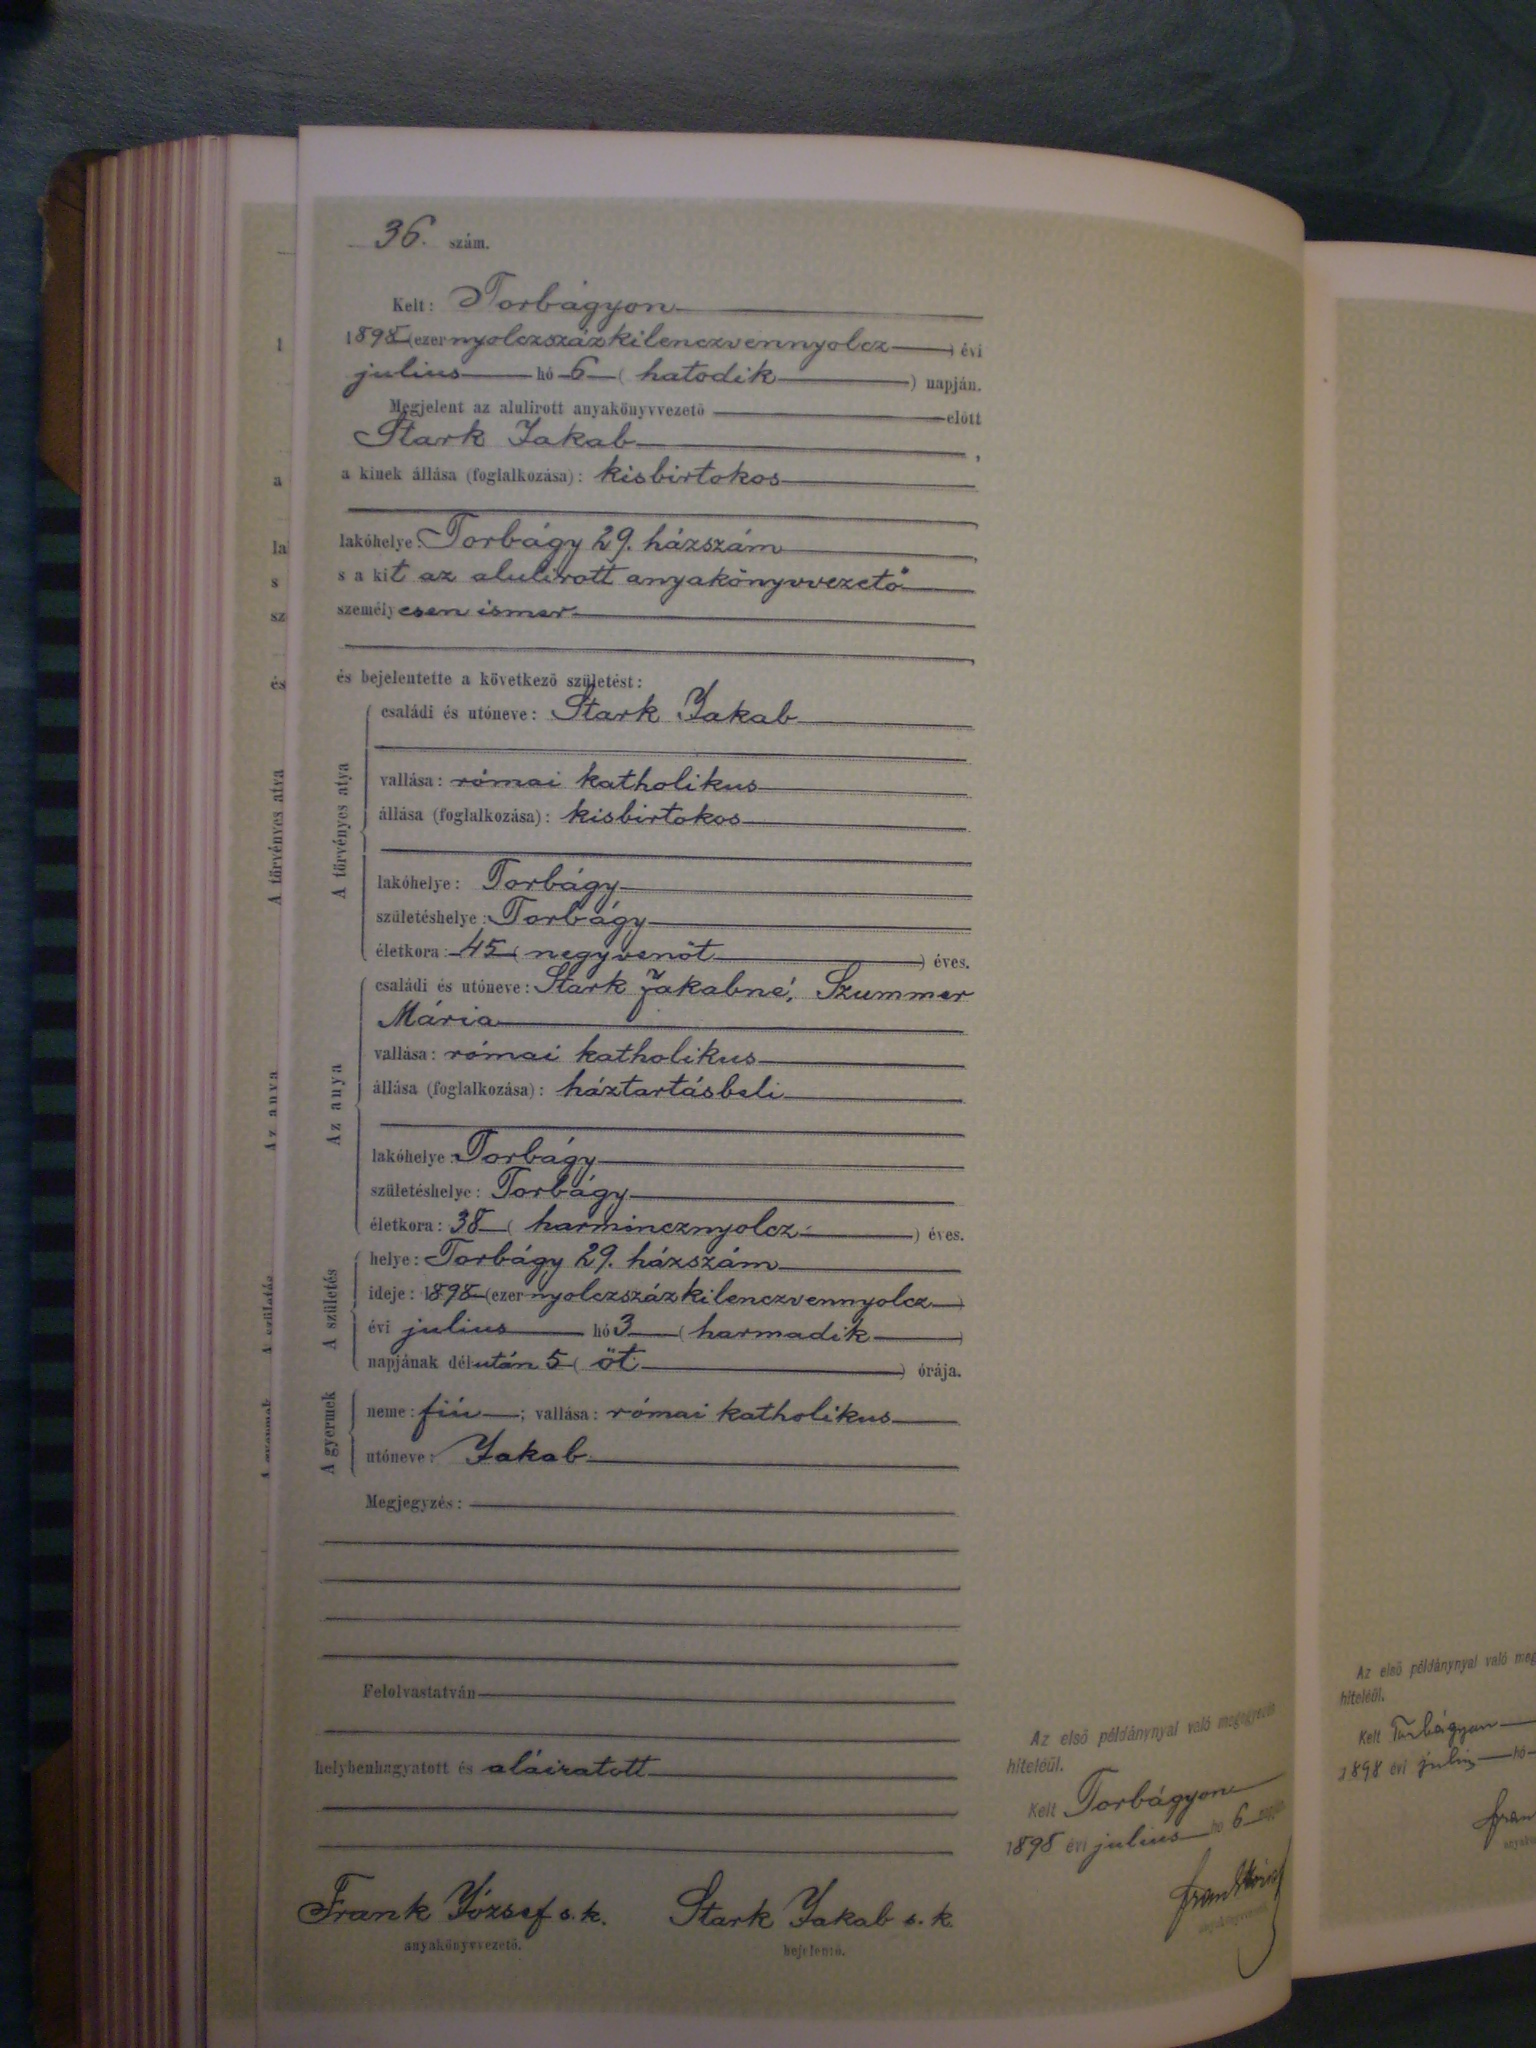 36. szám.
Kelt: Torbágyon
1898 (ezer nyolczszázkilenczvennyolcz) évi
julius hó 6 (hatodik) napján.
Megjelent az alulirott anyakönyvvezető előtt
Stark Jakab,
a kinek állása (foglalkozása): kisbirtokos
lakóhelye: Torbágy 29. házszám
s a kit az alulirott anyakönyvvezető
személyesen ismer
és bejelentette a következő születést:
A törvényes atya
családi és utóneve: Stark Jakab
vallása: római katholikus
állása (foglalkozása): kisbirtokos
lakóhelye: Torbágy
születéshelye: Torbágy
életkora: 45 (negyvenöt) éves.
Az anya
családi és utóneve: Stark Jakabné, Szummer
Mária
vallása: római katholikus
állása (foglalkozása): háztartásbeli
lakóhelye: Torbágy
születéshelye: Torbágy
életkora: 38 (harmincznyolcz) éves.
A születés
helye: Torbágy 29. házszám
ideje: 1898 (ezer nyolczszázkilenczvennyolcz)
évi julius hó 3 (harmadik)
napjának délután 5 (öt) órája.
A gyermek
neme: fiú; vallása: római katholikus
utóneve: Jakab
Megjegyzés:
Felolvastatván
helybenhagyatott és aláiratott
Frank József s. k.
anyakönyvvezető.
Stark Jakab s. k.
bejelentő.
Az első példánynyal való megegyezés
hiteléül.
Kelt Torbágyon
1898 évi julius hó 6 napján
Frank József
anyakönyvvezető.
l
a
la
s
sz
és
A törvényes atya
Az anya
A születés
A gyermek
Az első példánynyal való meg
hiteléül.
Kelt Torbágyon
1898 évi julius hó
Fran
anyakö